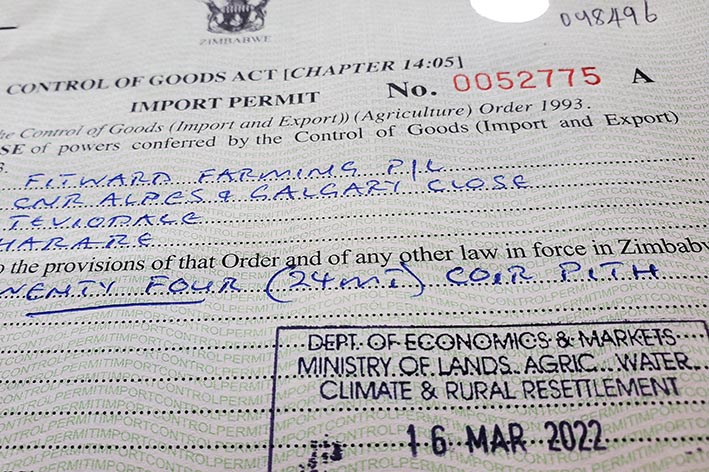 098496
ZIMBABWE
CONTROL OF GOODS ACT [CHAPTER 14:05]
IMPORT PERMIT No. 0052775 A
he Control of Goods (Import and Export)) (Agriculture) Order 1993.
SE of powers conferred by the Control of Goods (Import and Export)
3.
FITWARD FARMING P/L
CNR ALPES & GALGARY CLOSE
TEVIODALE
HARARE
o the provisions of that Order and of any other law in force in Zimbabw
WENTY FOUR (24mt) COIR PITH
DEPT. OF ECONOMICS & MARKETS
MINISTRY OF LANDS. AGRIC. WATER
CLIMATE & RURAL RESETTLEMENT
16 MAR 2022